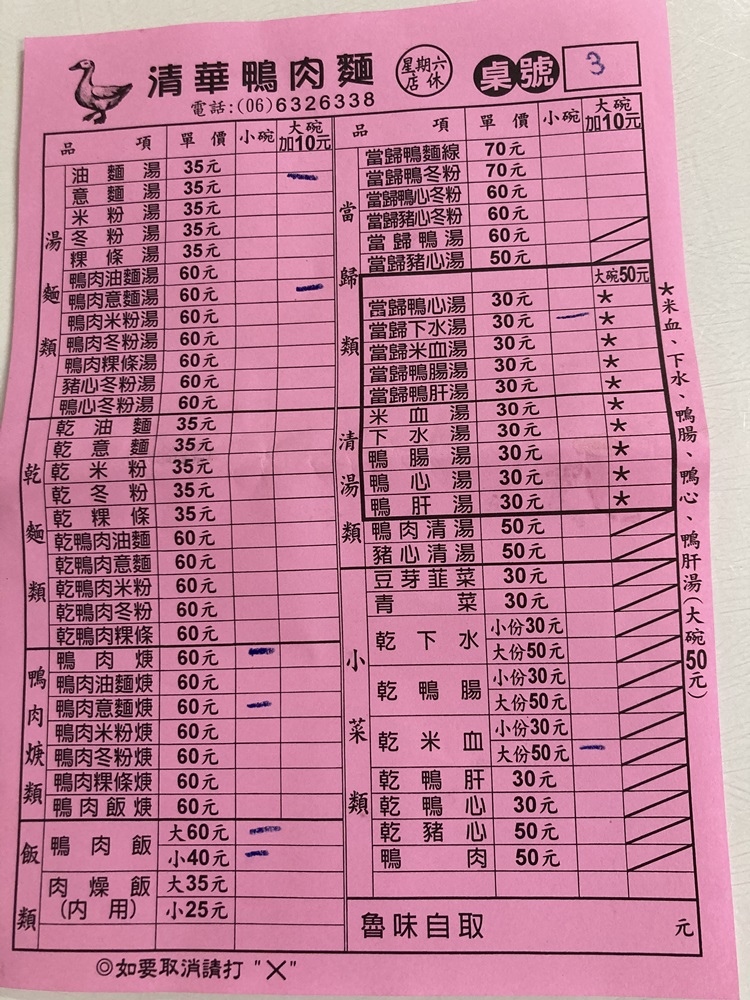 清華鴨肉麵 星期六店休 桌號 3
電話:(06)6326338
品項 單價 小碗 大碗加10元
湯麵類
油麵湯 35元 —
意麵湯 35元
米粉湯 35元
冬粉湯 35元
粿條湯 35元
鴨肉油麵湯 60元
鴨肉意麵湯 60元 —
鴨肉米粉湯 60元
鴨肉冬粉湯 60元
鴨肉粿條湯 60元
豬心冬粉湯 60元
鴨心冬粉湯 60元
乾麵類
乾油麵 35元
乾意麵 35元
乾米粉 35元
乾冬粉 35元
乾粿條 35元
乾鴨肉油麵 60元
乾鴨肉意麵 60元
乾鴨肉米粉 60元
乾鴨肉冬粉 60元
乾鴨肉粿條 60元
鴨肉焿類
鴨肉焿 60元 —
鴨肉油麵焿 60元
鴨肉意麵焿 60元 —
鴨肉米粉焿 60元
鴨肉冬粉焿 60元
鴨肉粿條焿 60元
鴨肉飯焿 60元
飯類
鴨肉飯 大60元 —
小40元 —
肉燥飯 大35元
(內用) 小25元
品項 單價 小碗 大碗加10元
當歸類
當歸鴨麵線 70元
當歸鴨冬粉 70元
當歸鴨心冬粉 60元
當歸豬心冬粉 60元
當歸鴨湯 60元
當歸豬心湯 50元
大碗50元
當歸鴨心湯 30元 *
當歸下水湯 30元 — *
當歸米血湯 30元 *
當歸鴨腸湯 30元 *
當歸鴨肝湯 30元 *
清湯類
米血湯 30元 *
下水湯 30元 *
鴨腸湯 30元 *
鴨心湯 30元 *
鴨肝湯 30元 *
鴨肉清湯 50元
豬心清湯 50元
小菜類
豆芽韮菜 30元
青菜 30元
乾下水 小份30元
大份50元
乾鴨腸 小份30元
大份50元
乾米血 小份30元
大份50元 —
乾鴨肝 30元
乾鴨心 30元
乾豬心 50元
鴨肉 50元
魯味自取 元
*米血、下水、鴨腸、鴨心、鴨肝湯(大碗50元)
◎如要取消請打"×"